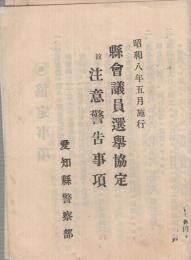 昭和八年五月施行
縣會議員選擧協定
並
注意警告事項
愛知縣警察部